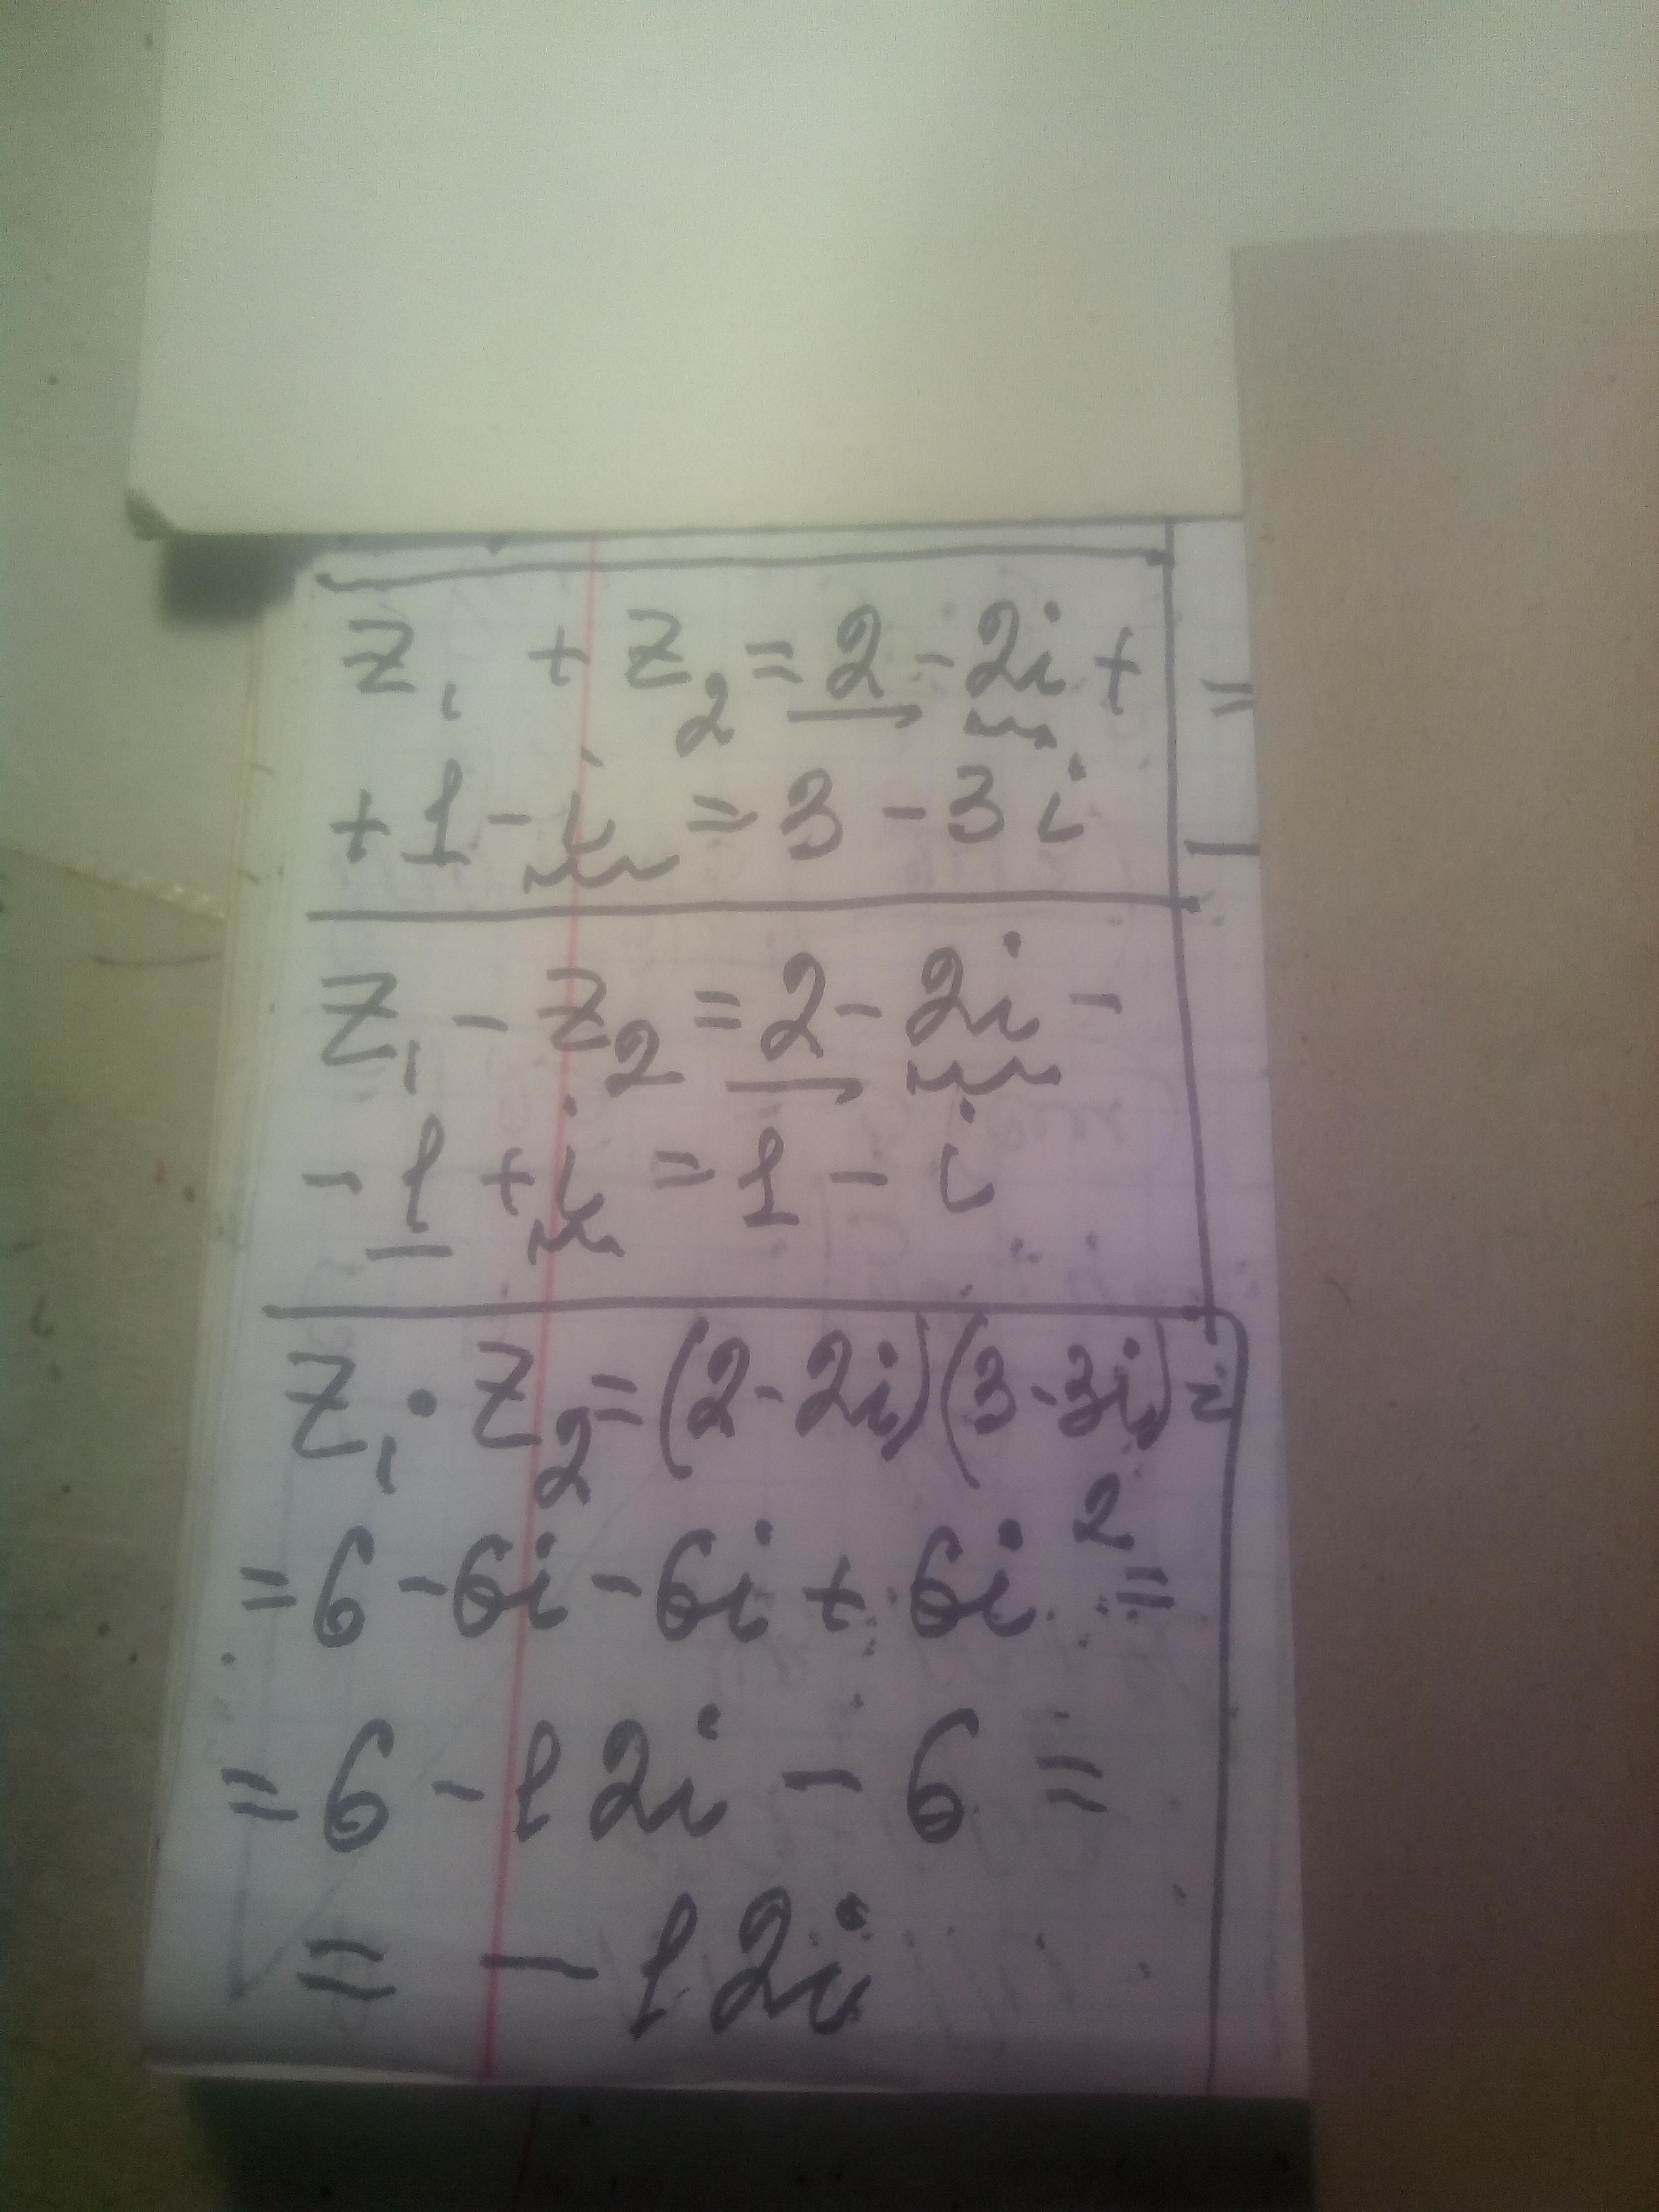 z₁ + z₂ = 2 - 2i +
+ 1 - i = 3 - 3i
z₁ - z₂ = 2 - 2i -
- 1 + i = 1 - i
z₁ · z₂ = (2 - 2i)(3 - 3i) =
= 6 - 6i - 6i + 6i² =
= 6 - 12i - 6 =
= - 12i